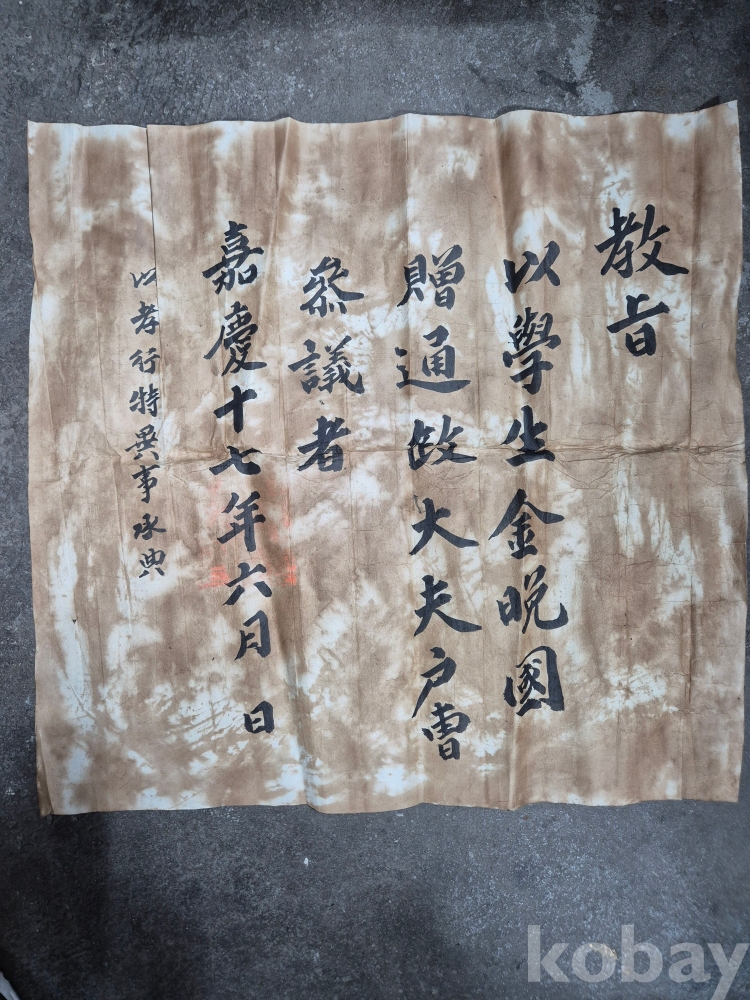 教旨
以學生金晩國
贈通政大夫户曺
叅議者
嘉慶十七年六月 日
以孝行特異事承典
kobay